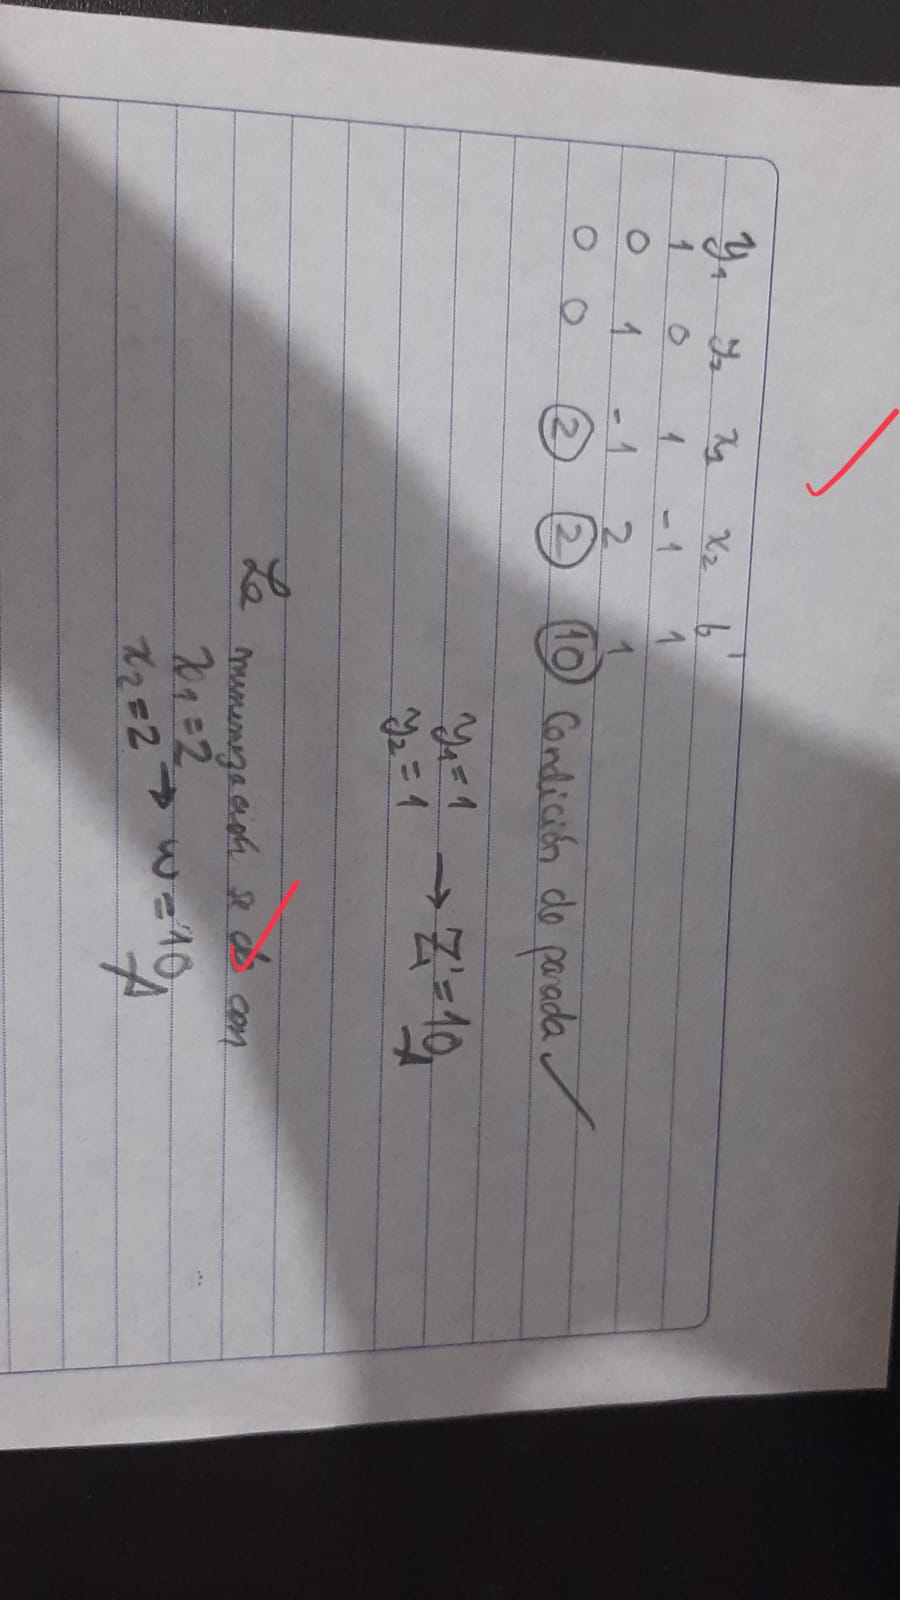 y₁ y₂ x₁ x₂ b'
1 0 1 -1 1
0 1 -1 2 1
0 0 2 2 10 Condición de parada
y₁ = 1
y₂ = 1 → Z' = 10
La minimización se da con
x₁ = 2
x₂ = 2 → w = 10